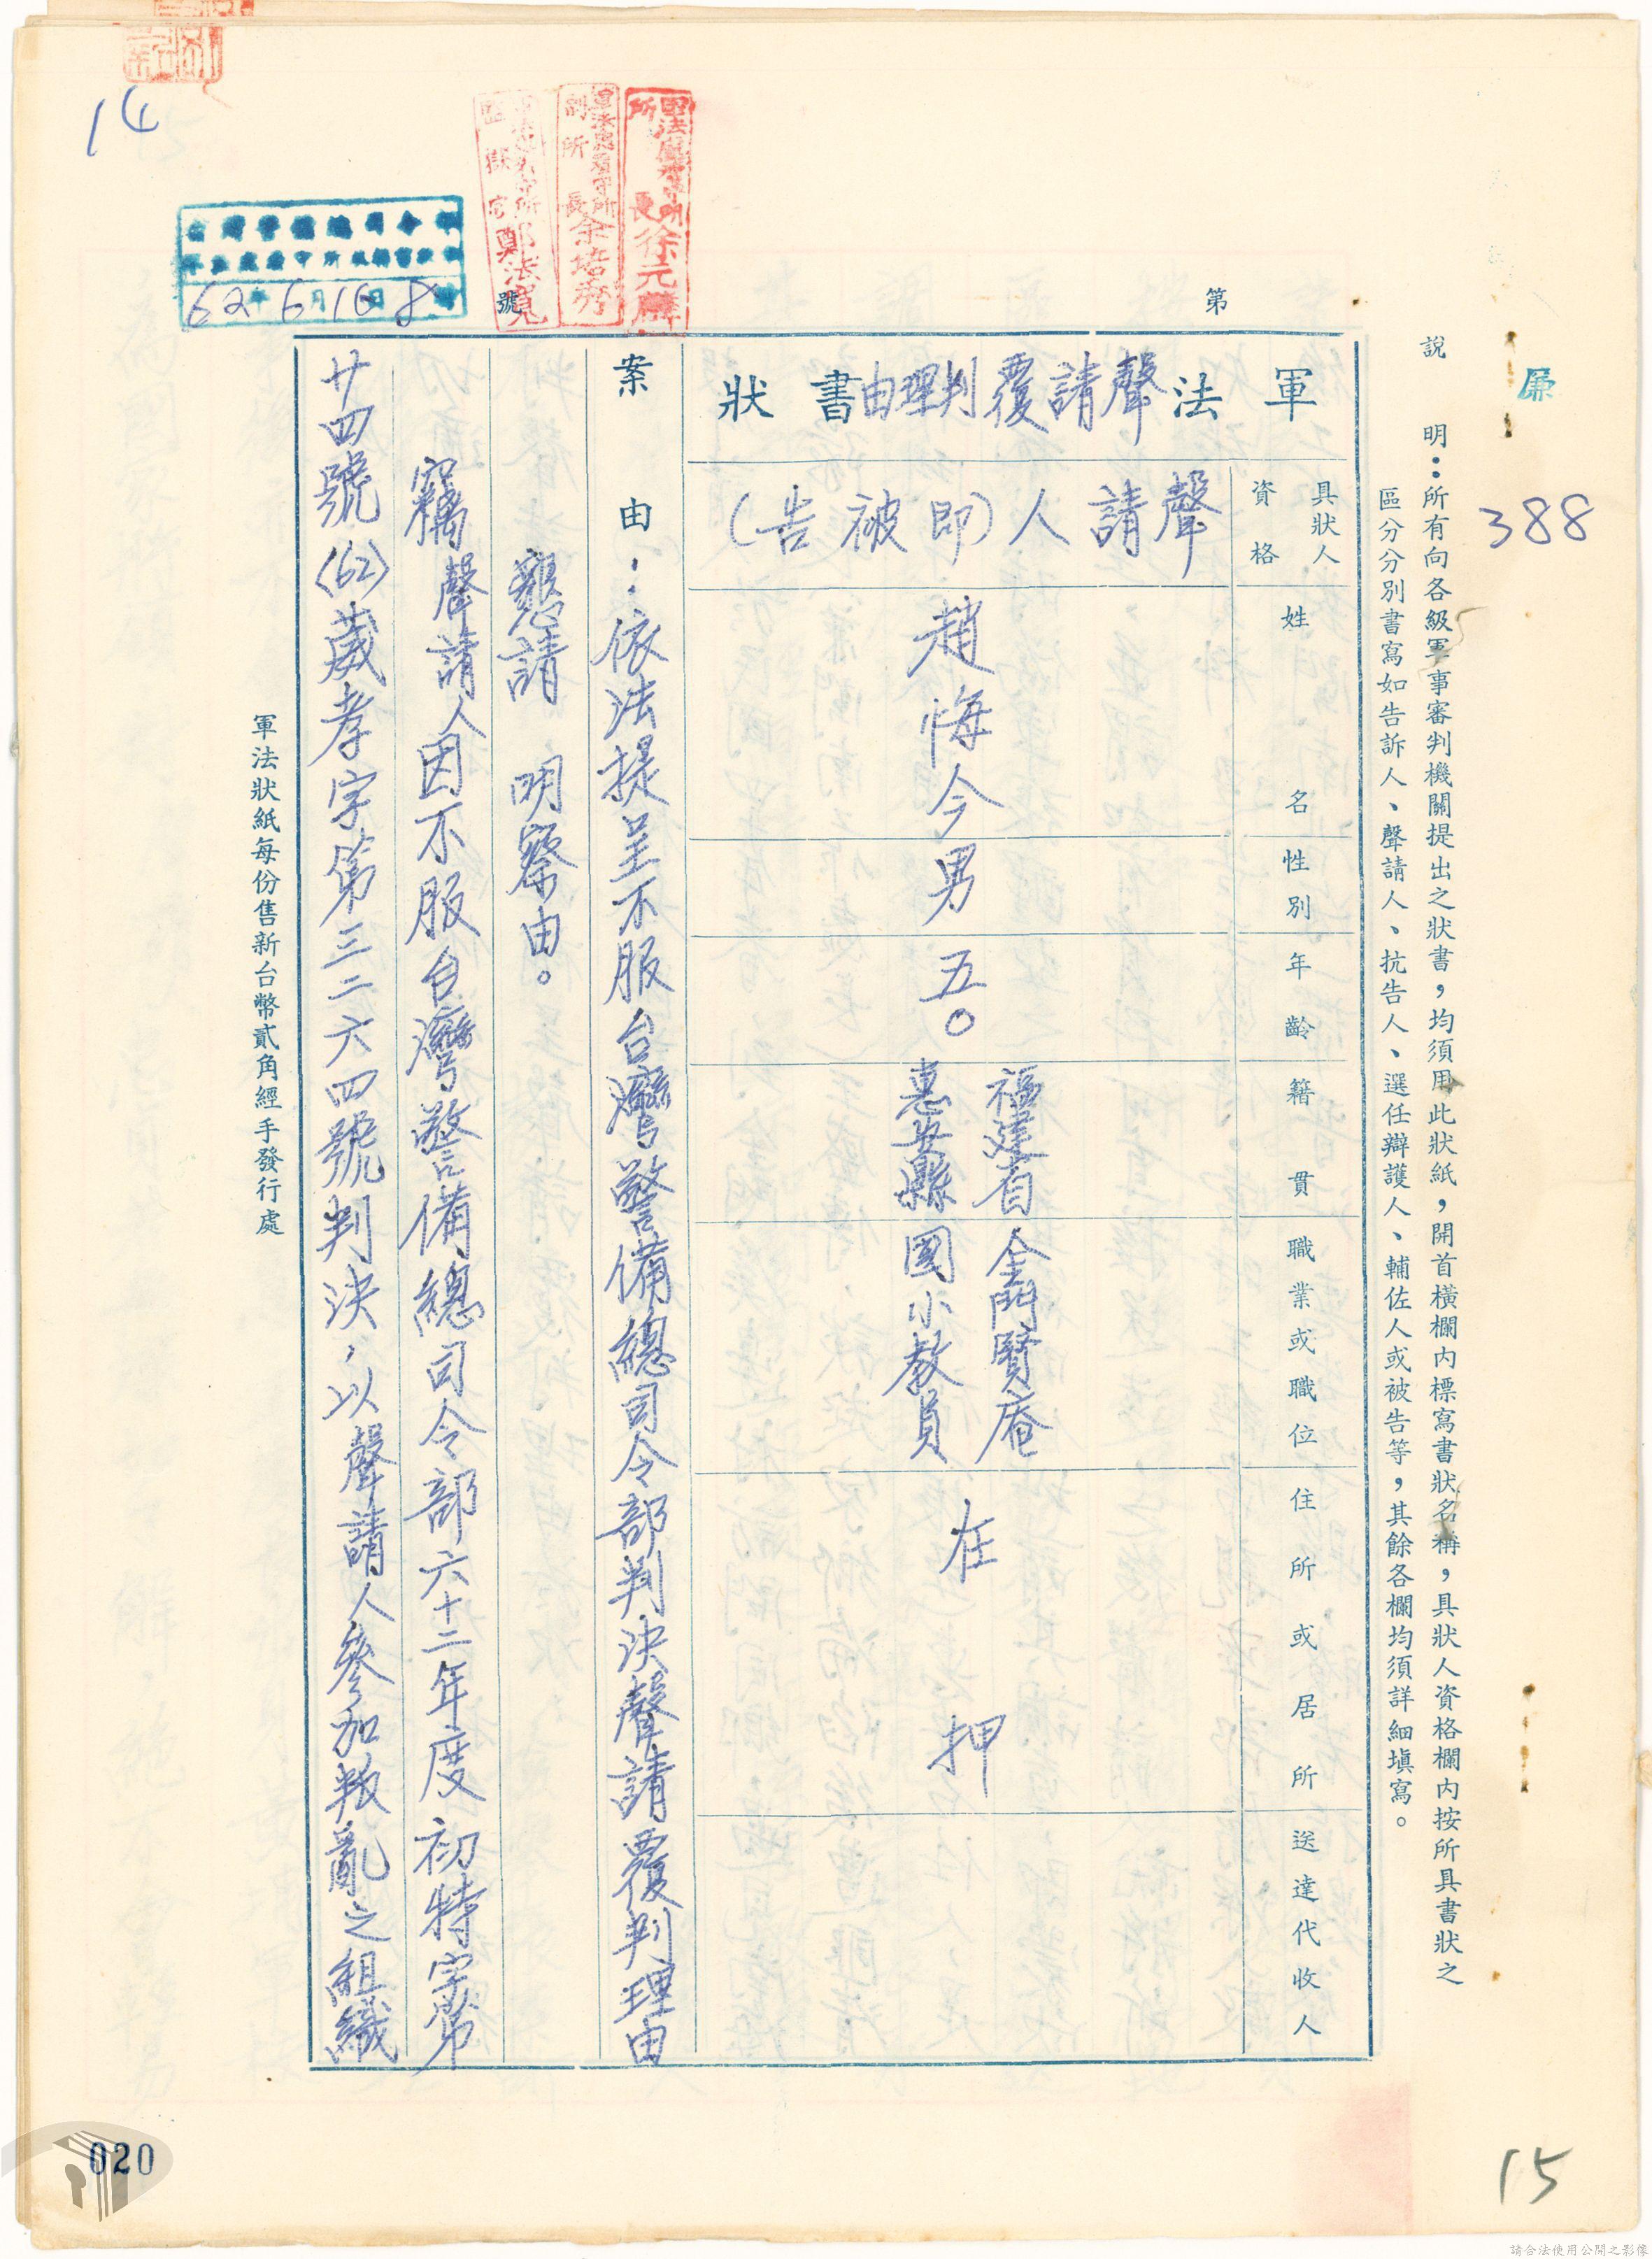 14
62年6月16日8時
所長徐元麟
副所長余培秀
監獄官鄭法寬
第
號
388
說明：所有向各級軍事審判機關提出之狀書，均須用此狀紙，開首橫欄內標寫書狀名稱，具狀人資格欄內按所具書狀之
區分分別書寫如告訴人、聲請人、抗告人、選任辯護人、輔佐人或被告等，其餘各欄均須詳細填寫。
軍法聲請覆判理由書狀
具狀人資格
姓名
性別
年齡
籍貫
職業或職位
住所或居所
送達代收人
聲請人(即被告)
趙悔今
男
五〇
福建省
惠安縣
金門賢庵
國小教員
在押
案由：依法提呈不服台灣警備總司令部判決聲請覆判理由
懇請 明察由。
竊聲請人因不服台灣警備總司令部六十二年度初特字第
廿四號(62)崴孝字第三二六四號判決，以聲請人參加叛亂之組織
軍法狀紙每份售新台幣貳角經手發行處
020
15
請合法使用公開之影像